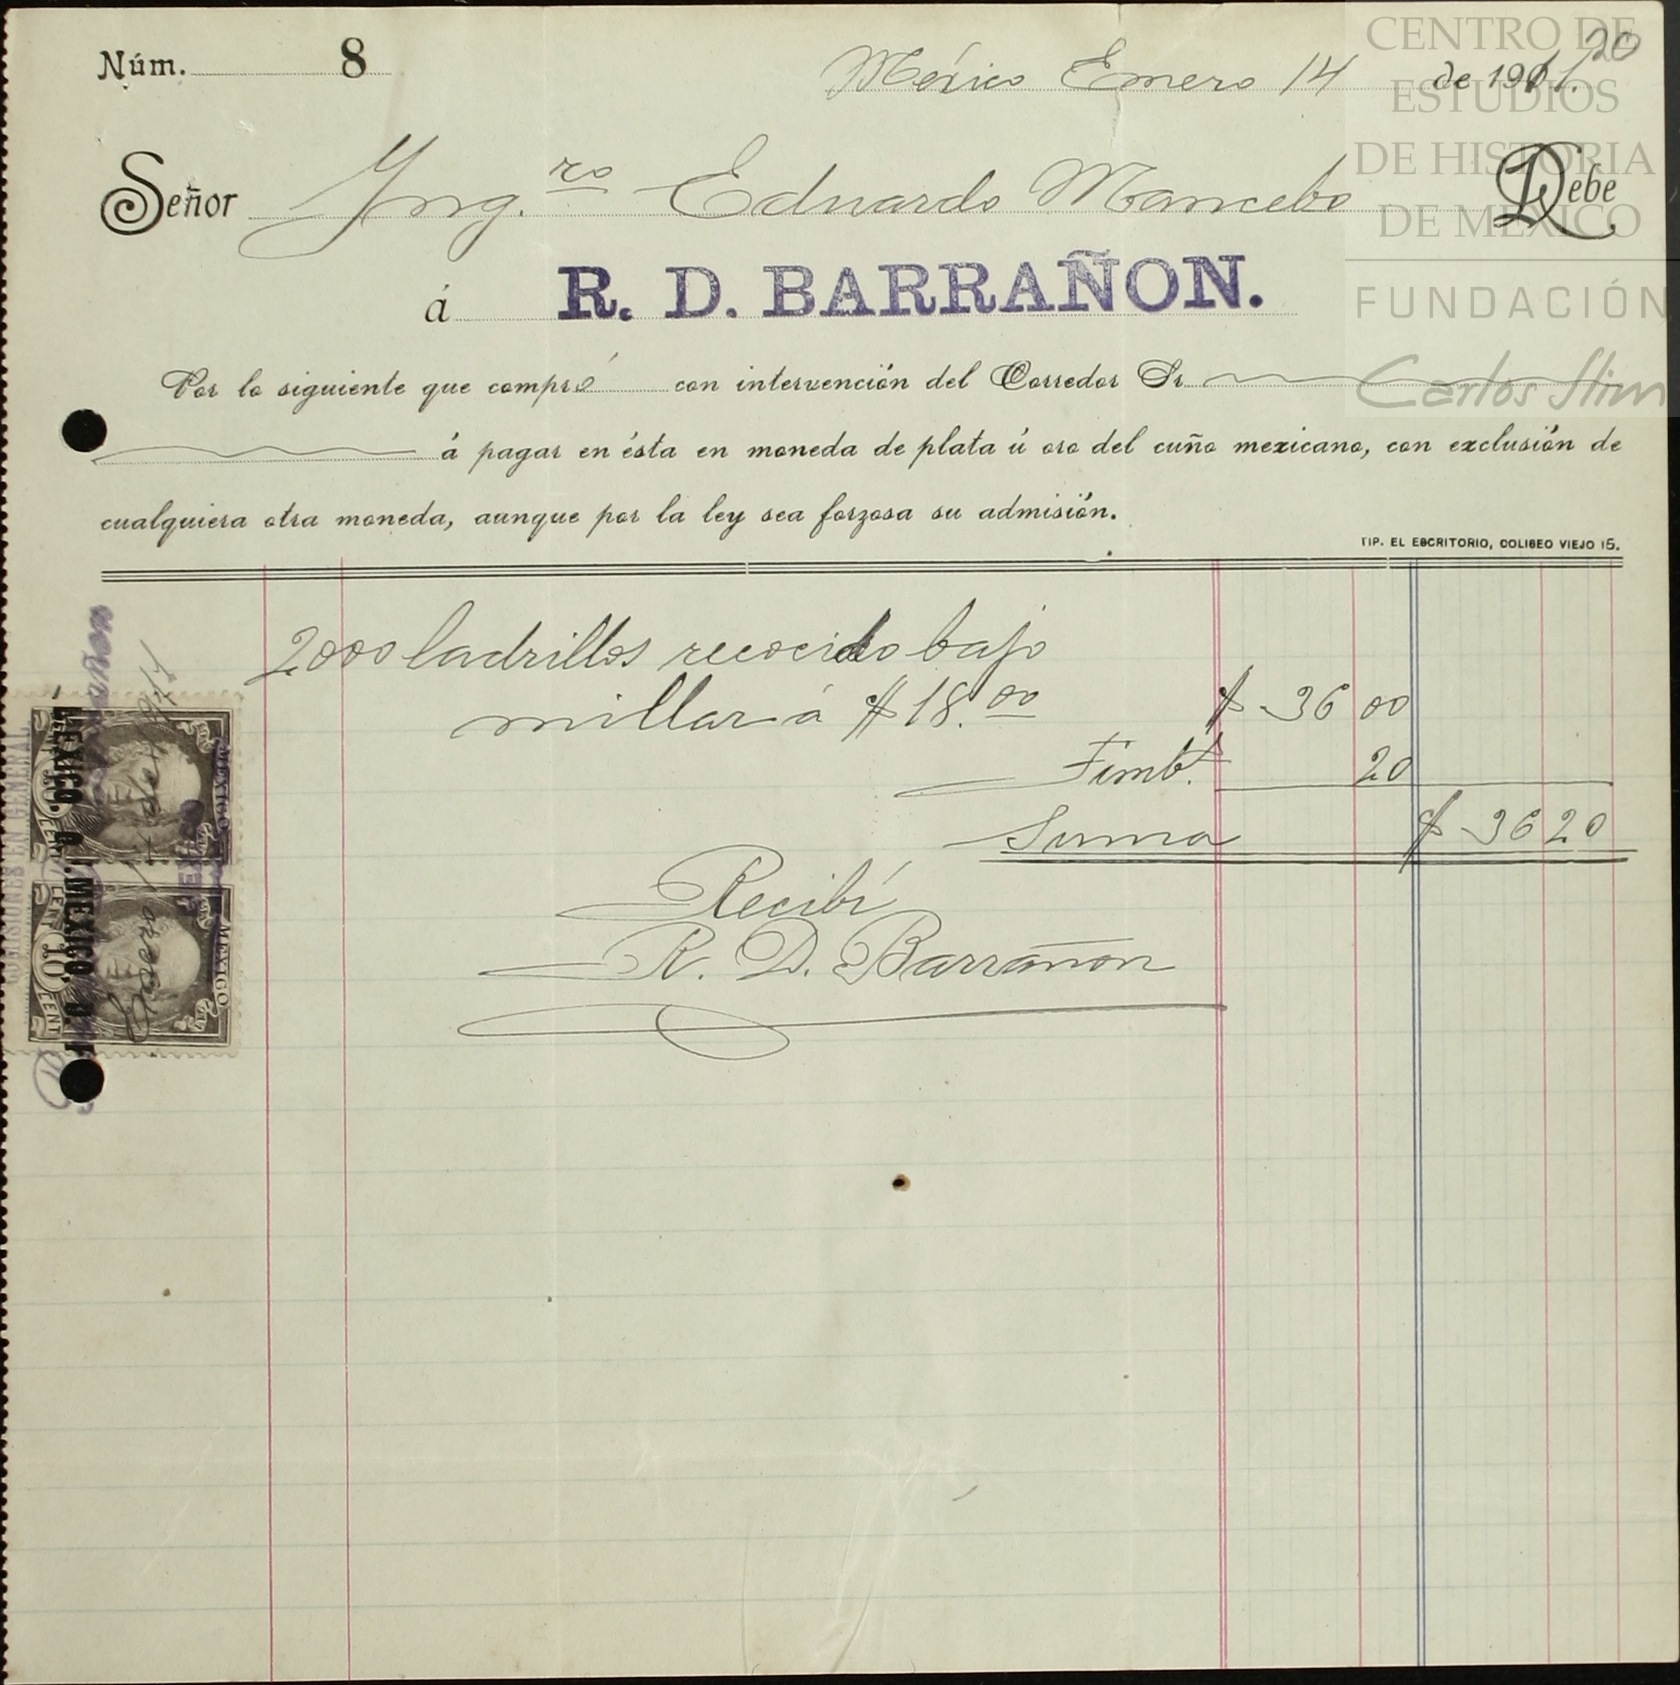 Núm. 8
México Enero 14 de 1911.
20
Señor Ing.ro Eduardo Mancebo Debe
á R. D. BARRAÑON.
Por lo siguiente que compró con intervención del Corredor Sr
á pagar en ésta en moneda de plata ú oro del cuño mexicano, con exclusión de
cualquiera otra moneda, aunque por la ley sea forzosa su admisión.
TIP. EL ESCRITORIO, COLISEO VIEJO 15.
2000 ladrillos recocido bajo
millar á $18.00 $ 36 00
Timb.s 20
Suma $ 36 20
Recibí
R. D. Barrañon
CENTRO DE
ESTUDIOS
DE HISTORIA
DE MÉXICO
FUNDACIÓN
Carlos Slim
MEXICO
10
CENT
MEXICO
10
CENT
MEXICO. D. F.
MEXICO. D. F
Enero 14 de 1911